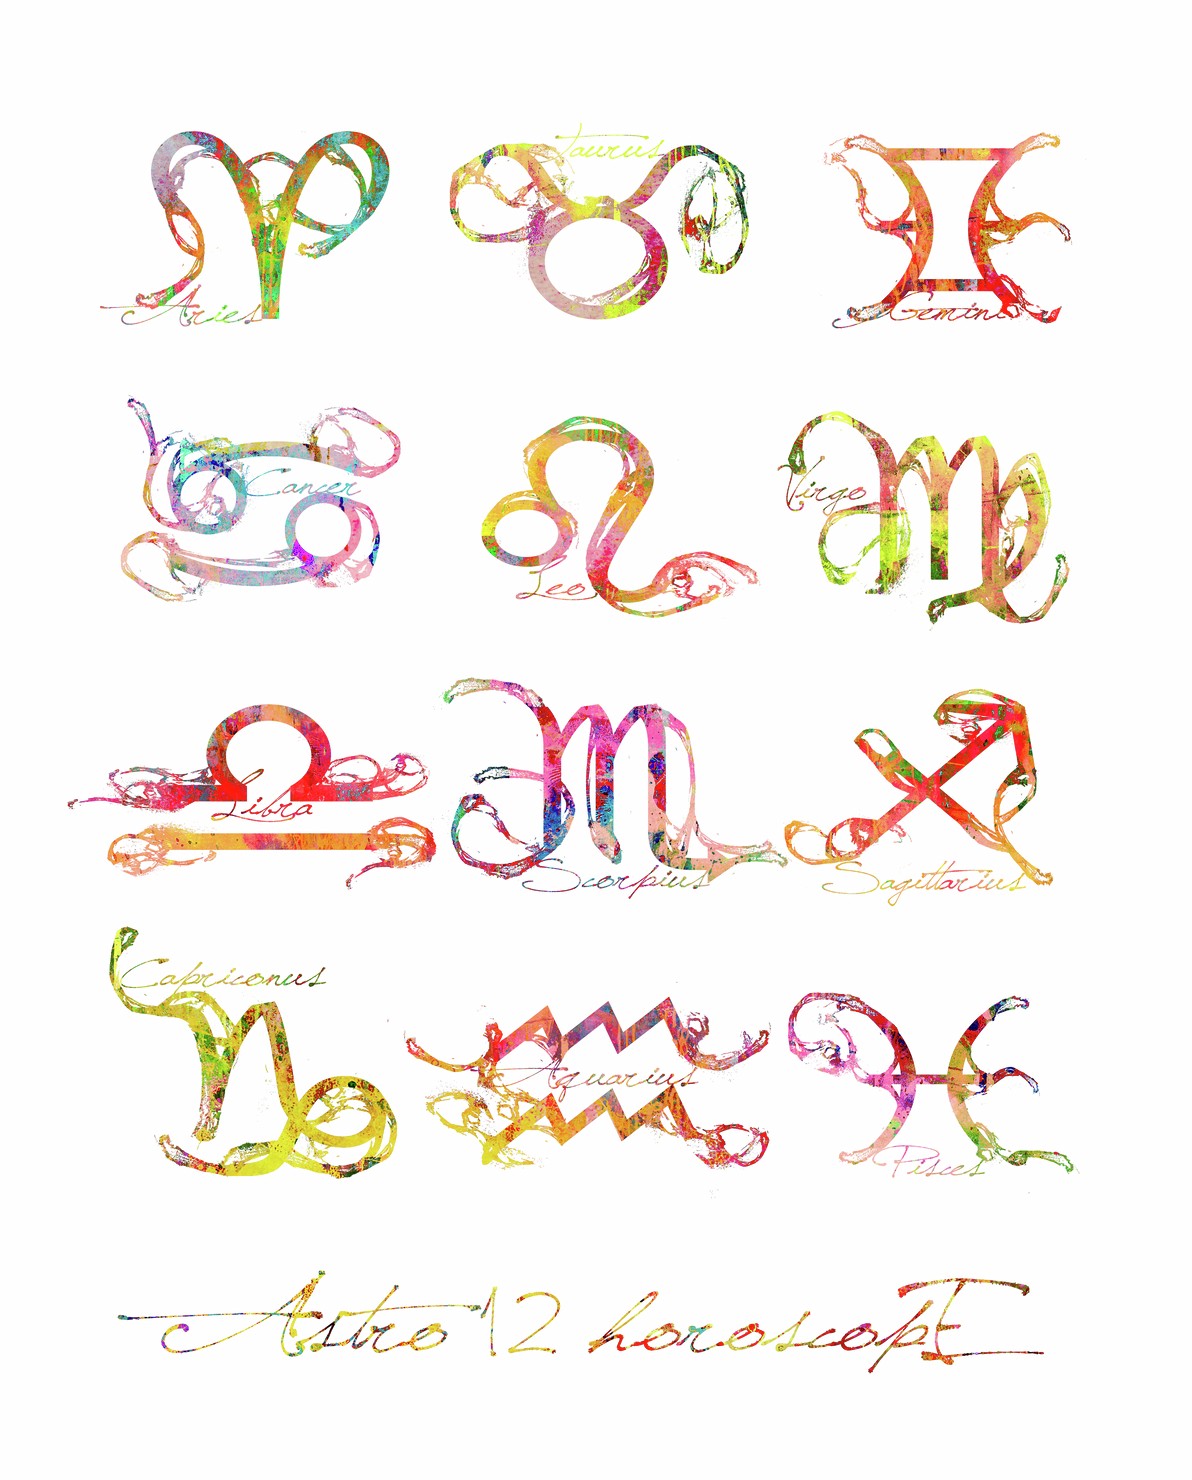 Aries
Taurus
Gemini
Cancer
Leo
Virgo
Libra
Scorpius
Sagittarius
Capriconus
Aquarius
Pisces
Astro 12 horoscopE